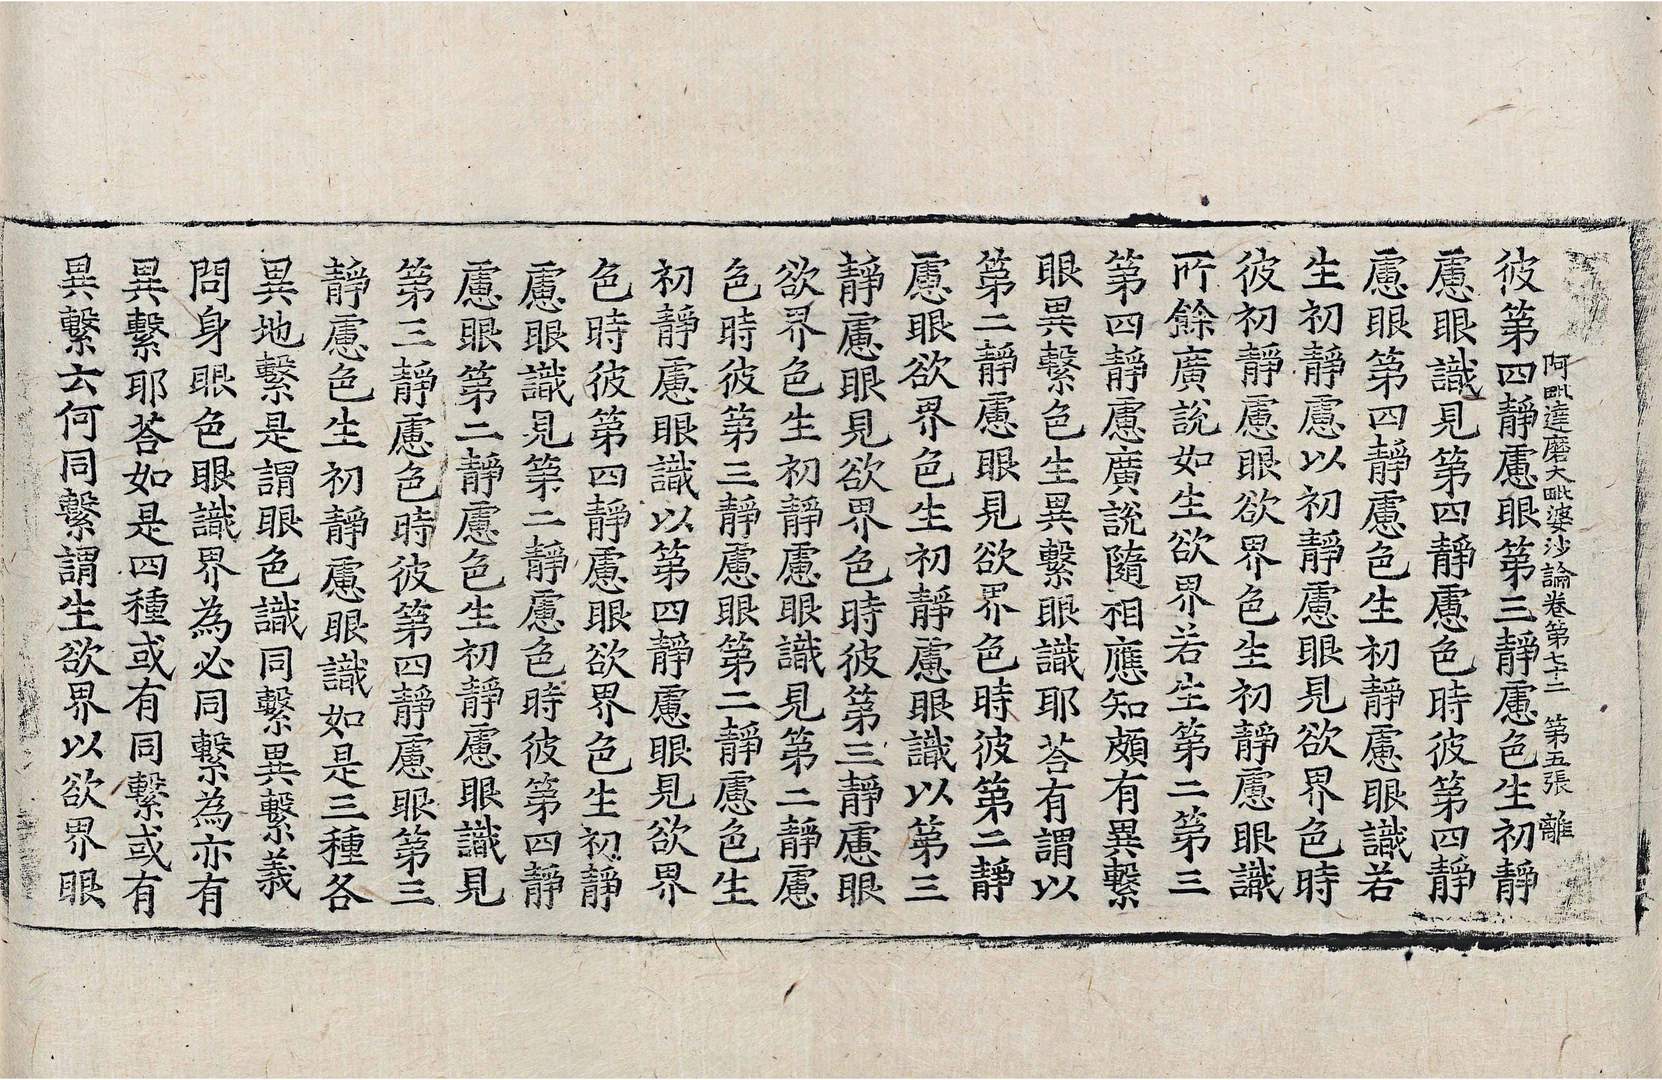 阿毗達磨大毗婆沙論卷第七十二 第五張 離
彼第四靜慮眼第三靜慮色生初靜
慮眼識見第四靜慮色時彼第四靜
慮眼第四靜慮色生初靜慮眼識若
生初靜慮以初靜慮眼見欲界色時
彼初靜慮眼欲界色生初靜慮眼識
所餘廣說如生欲界若生第二第三
第四靜慮廣說隨相應知頗有異繫
眼異繫色生異繫眼識耶荅有謂以
第二靜慮眼見欲界色時彼第二靜
慮眼欲界色生初靜慮眼識以第三
靜慮眼見欲界色時彼第三靜慮眼
欲界色生初靜慮眼識見第二靜慮
色時彼第三靜慮眼第二靜慮色生
初靜慮眼識以第四靜慮眼見欲界
色時彼第四靜慮眼欲界色生初靜
慮眼識見第二靜慮色時彼第四靜
慮眼第二靜慮色生初靜慮眼識見
第三靜慮色時彼第四靜慮眼第三
靜慮色生初靜慮眼識如是三種各
異地繫是謂眼色識同繫異繫義
問身眼色眼識界為必同繫為亦有
異繫耶荅如是四種或有同繫或有
異繫云何同繫謂生欲界以欲界眼